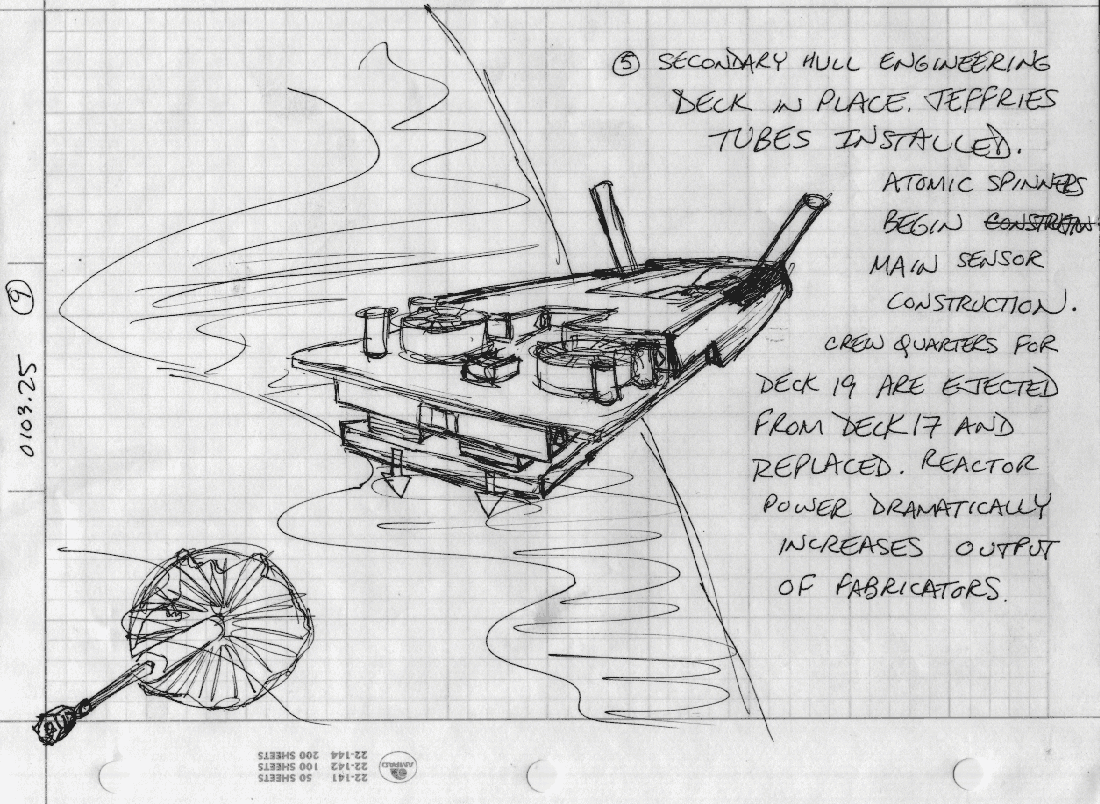 ⑤ SECONDARY HULL ENGINEERING
DECK IN PLACE. JEFFRIES
TUBES INSTALLED.
ATOMIC SPINNERS
BEGIN CONSTRUCTION
MAIN SENSOR
CONSTRUCTION.
CREW QUARTERS FOR
DECK 19 ARE EJECTED
FROM DECK 17 AND
REPLACED. REACTOR
POWER DRAMATICALLY
INCREASES OUTPUT
OF FABRICATORS.
0103.25 ⑨
22-141 50 SHEETS
22-142 100 SHEETS
22-144 200 SHEETS
AMPAD